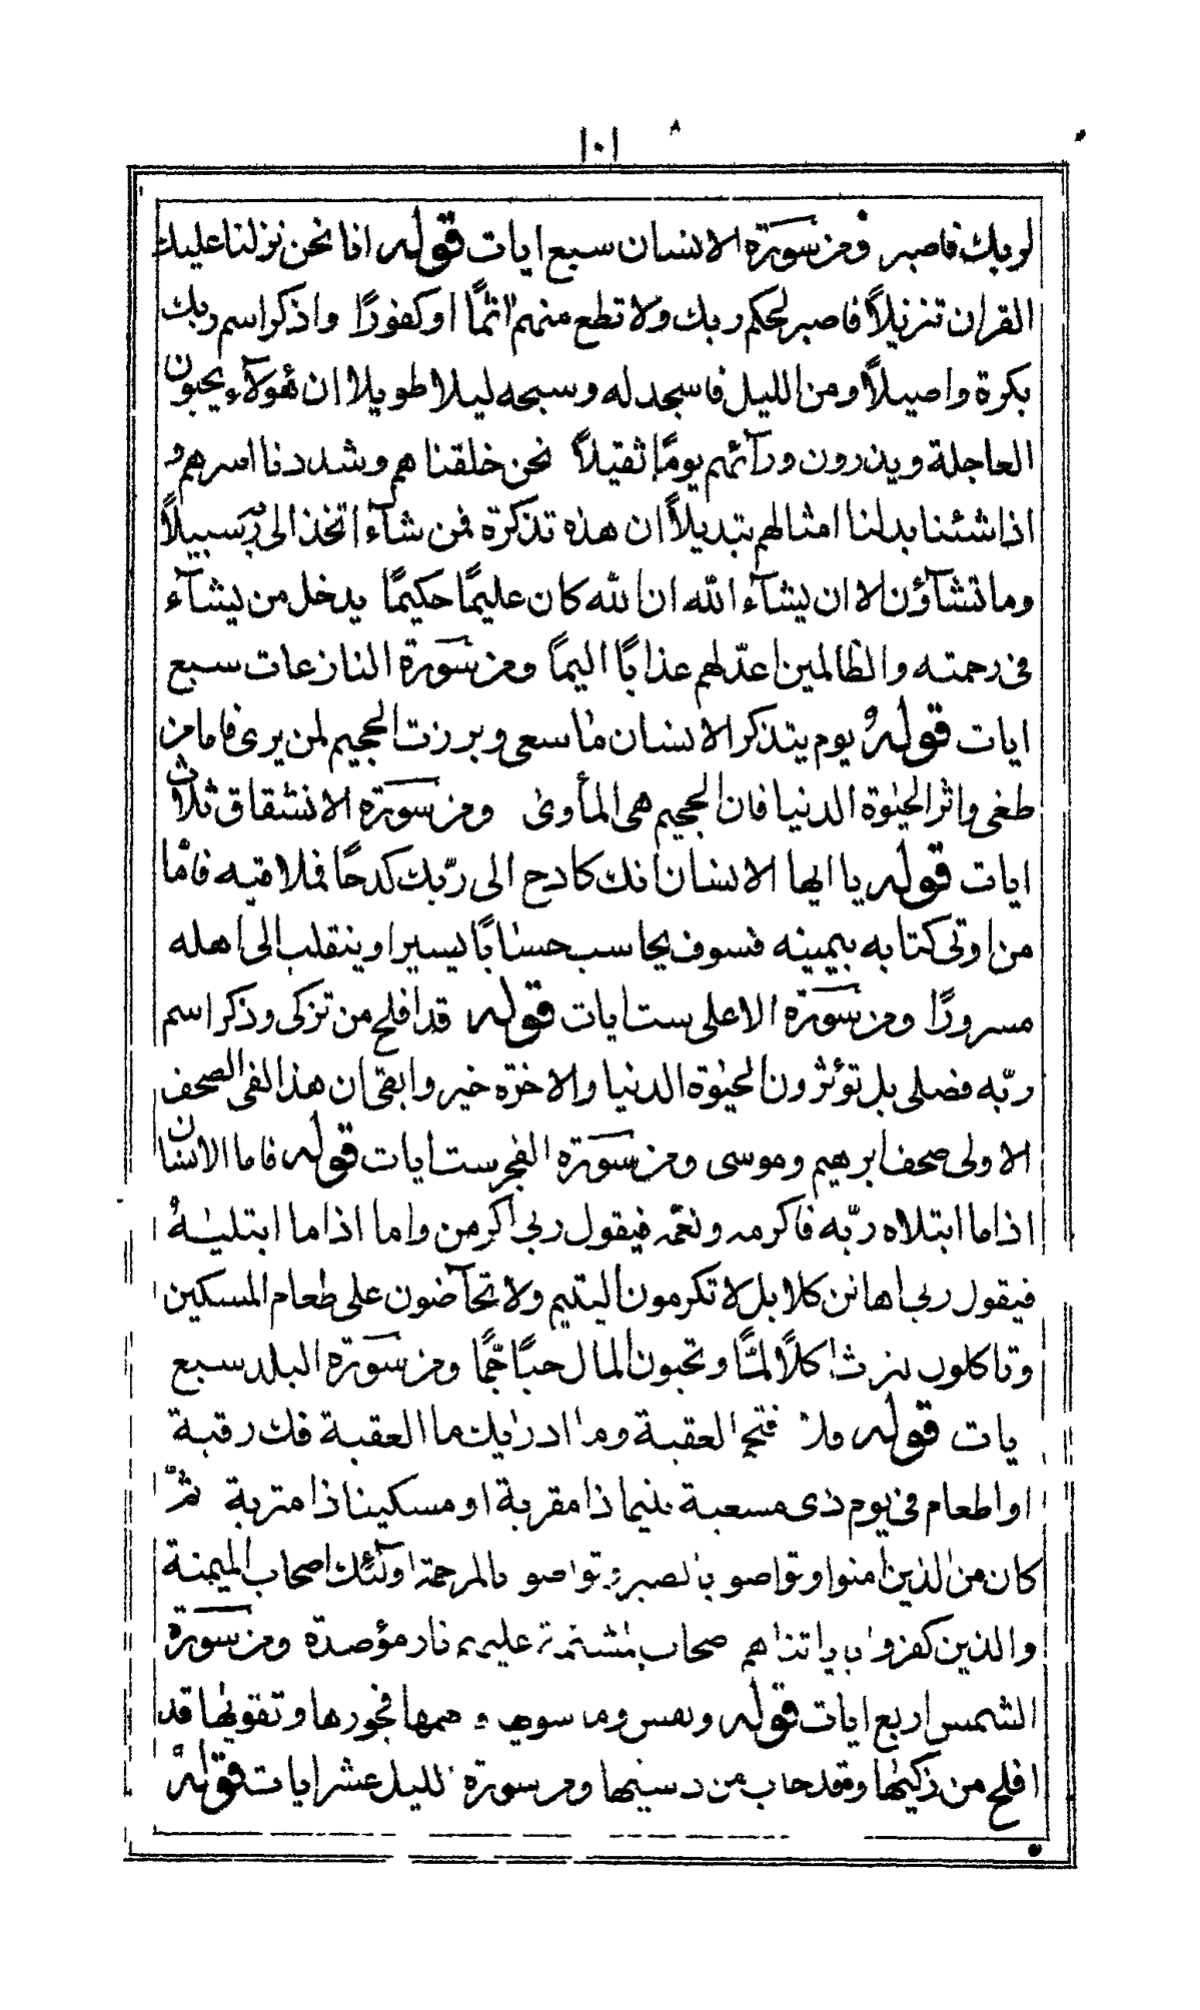 ١٠١
لربك فاصبر ومن سورة الانسان سبع ايات قوله انا نحن نزلنا عليك
القران تنزيلاً فاصبر لحكم ربك ولا تطع منهم اثمًا اوكفورًا واذكر اسم ربك
بكرة واصيلاً ومن الليل فاسجد له وسبحه ليلا طويلا ان هؤلآء يحبون
العاجلة ويذرون ورآئهم يومًا ثقيلاً نحن خلقناهم وشددنا اسرهم و
اذا شئنا بدلنا امثالهم تبديلاً ان هذه تذكرة فمن شآء اتخذ الى ربه سبيلاً
وما تشآؤن الا ان يشآء الله ان الله كان عليمًا حكيمًا يدخل من يشآء
فى رحمته والظالمين اعدّ لهم عذابًا اليمًا ومن سورة النازعات سبع
ايات قوله يوم يتذكر الانسان ما سعى وبرزت الجحيم لمن يرى فاما من
طغى واثر الحيٰوة الدنيا فان الجحيم هى المأوى ومن سورة الانشقاق ثلاث
ايات قوله يا ايها الانسان انك كادح الى ربّك كدحًا فملاقيه فامّا
من اوتى كتابه بيمينه فسوف يحاسب حسابًا يسيرا وينقلب الى اهله
مسرورًا ومن سورة الاعلى ست ايات قوله قد افلح من تزكى وذكر اسم
ربّه فصلى بل تؤثرون الحيٰوة الدنيا والاخرة خير وابقى ان هذا لفى الصحف
الاولى صحف ابرهيم وموسى ومن سورة الفجر ست ايات قوله فاما الانسان
اذا ما ابتلاه ربّه فاكرمه ونعّمه فيقول ربى اكرمن واما اذا ما ابتليٰهُ
فيقول ربى اهانن كلا بل لا تكرمون اليتيم ولا تحآضون على طعام المسكين
وتاكلون التراث اكلاً لمًّا وتحبون المال حبًا جمًّا ومن سورة البلد سبع
يات قوله فلا اقتحم العقبة وما ادريٰك ما العقبة فك رقبة
او اطعام فى يوم ذى مسعبة يتيما ذا مقربة او مسكينا ذا متربة ثمّ
كان من الذين امنوا وتواصو بالصبر وتواصو بالمرحمة اولٓئك اصحاب الميمنة
والذين كفروا باياتنا هم صحاب المشئمة عليهم نار مؤصدة ومن سورة
الشمس اربع ايات قوله ونفس وما سويها فالهمها فجورها وتقويٰها قد
افلح من زكيٰها وقد خاب من دسيٰها ومن سورة الليل عشر ايات قوله